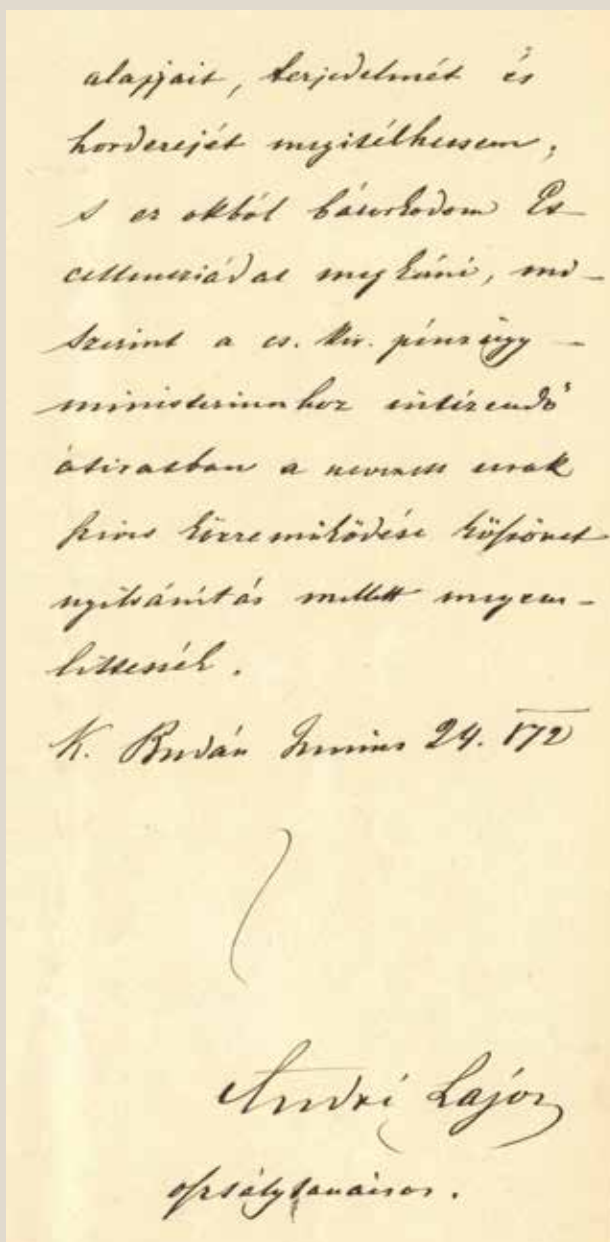 alapjait, terjedelmét és
horderejét megitélhessem,
s ez okból bátorkodom Ex-
cellentiádat megkérni, mi-
szerint a cs. kir. pénzügy-
ministeriumhoz intézendő
átiratban a nevezett urak
szives közreműködése köszönet
nyilvánitás mellett megem-
littessék.
K. Budán Junius 24. 872
André Lajos
osztálytanácsos.